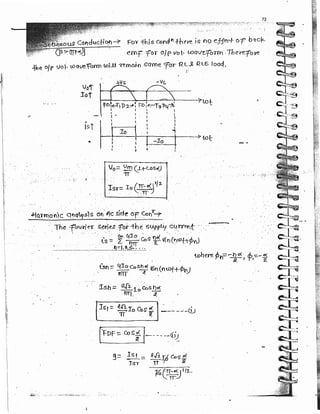 72
Continuous Conduction → For this condⁿ there is no effect of back
(β>π+α) emf for o/p vol. waveform. Therefore
the o/p vol. waveform will remain same for RL & RLE load.
+VE -VE
Vo↑
Io↑
FD T1D2 FD
→ωt
is↑
Io
-Io
→ωt
Vo = Vm/π (1+cosα)
Isr = Io (π-α/π)^1/2
Harmonic analysis on AC side of Conⁿ→
The fourier series for the supply current
is = Σ 4Io/nπ cos nα/2 sin(nωt+ϕn)
n=1,3,5...
where ϕn = -nα/2, ϕ1 = -α/2
isn = 4Io/nπ cos nα/2 sin(nωt+ϕn)
Isn = 2√2/nπ Io cos nα/2
Is1 = 2√2/π Io cos α/2 -----(i)
FDF = cos α/2 -----(ii)
g = Is1/Isr = 2√2/π Io cos α/2
Io(π-α/π)^1/2.